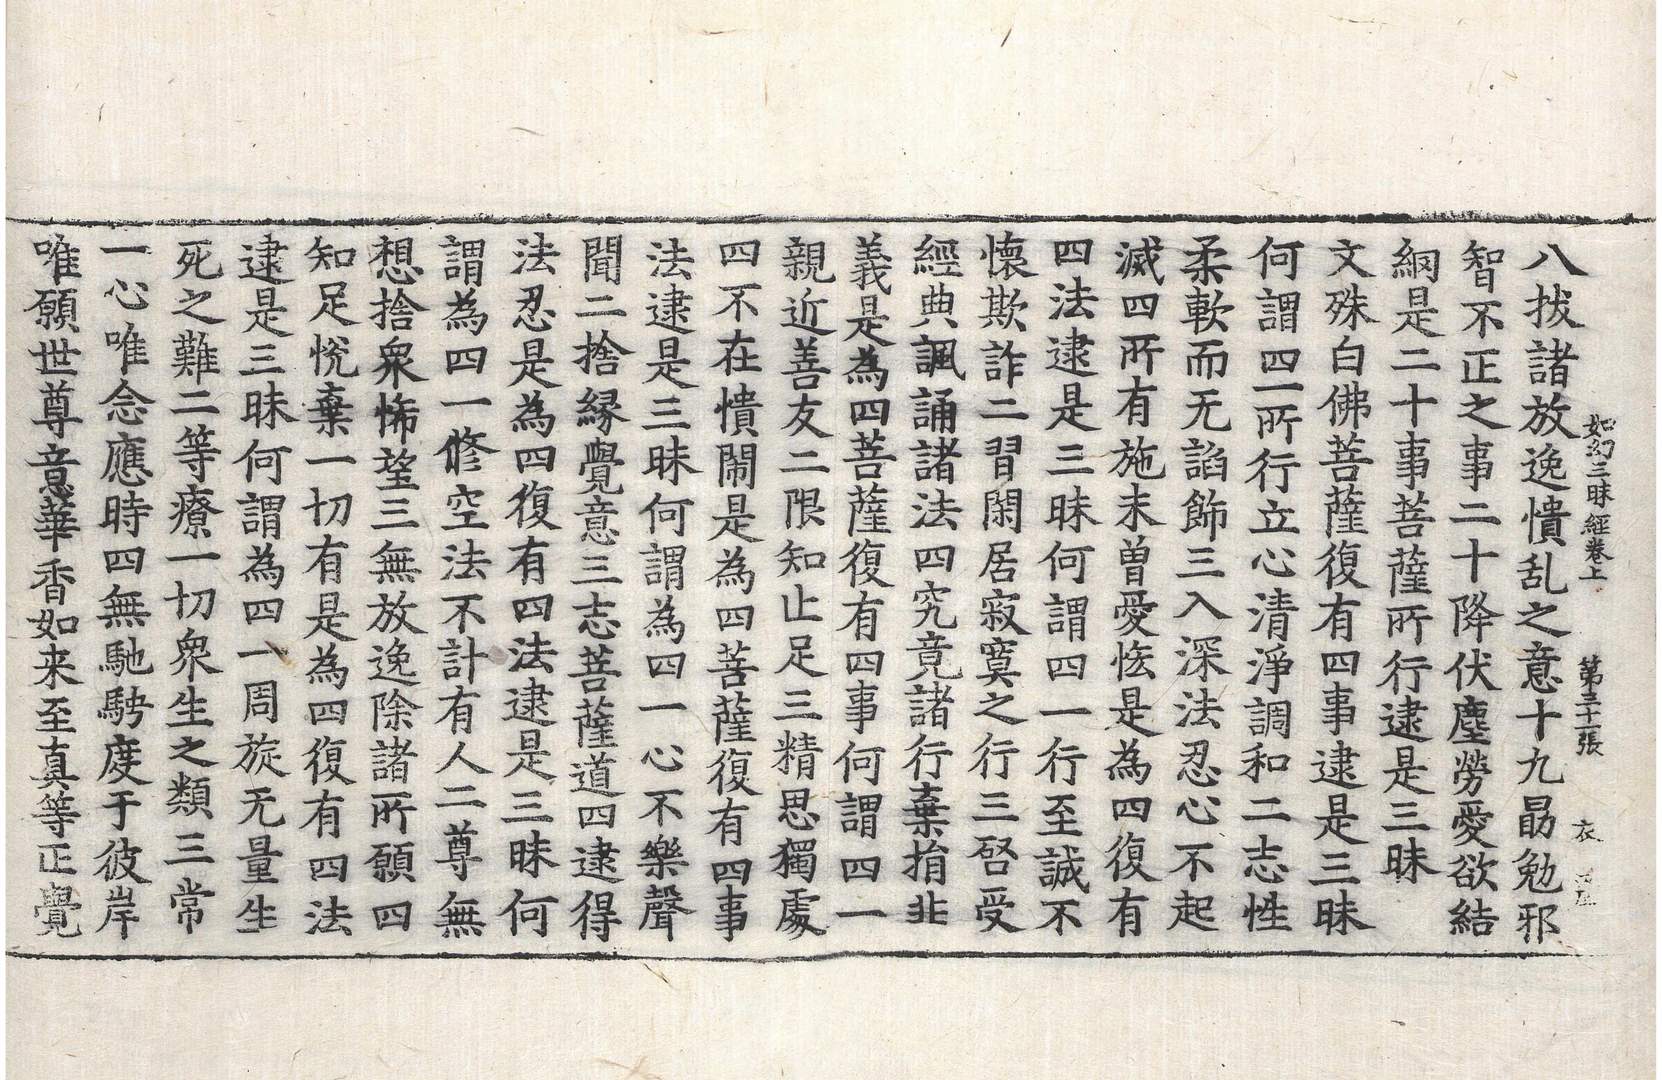 如幻三昧經卷上　第三十二張　衣
八拔諸放逸憒乱之意十九勗勉邪
智不正之事二十降伏塵勞愛欲結
網是二十事菩薩所行逮是三昧
文殊白佛菩薩復有四事逮是三昧
何謂四一所行立心清淨調和二志性
柔軟而无諂飾三入深法忍心不起
滅四所有施未曽愛悋是為四復有
四法逮是三昧何謂四一行至誠不
懷欺詐二習閑居寂寞之行三啓受
經典諷誦諸法四究竟諸行棄捐非
義是為四菩薩復有四事何謂四一
親近善友二限知止足三精思獨處
四不在憒閙是為四菩薩復有四事
法逮是三昧何謂為四一心不樂聲
聞二捨緣覺意三志菩薩道四逮得
法忍是為四復有四法逮是三昧何
謂為四一修空法不計有人二尊無
想捨衆悕望三無放逸除諸所願四
知足恱棄一切有是為四復有四法
逮是三昧何謂為四一周旋无量生
死之難二等療一切衆生之類三常
一心唯念應時四無馳騁度于彼岸
唯願世尊意華香如来至真等正覺